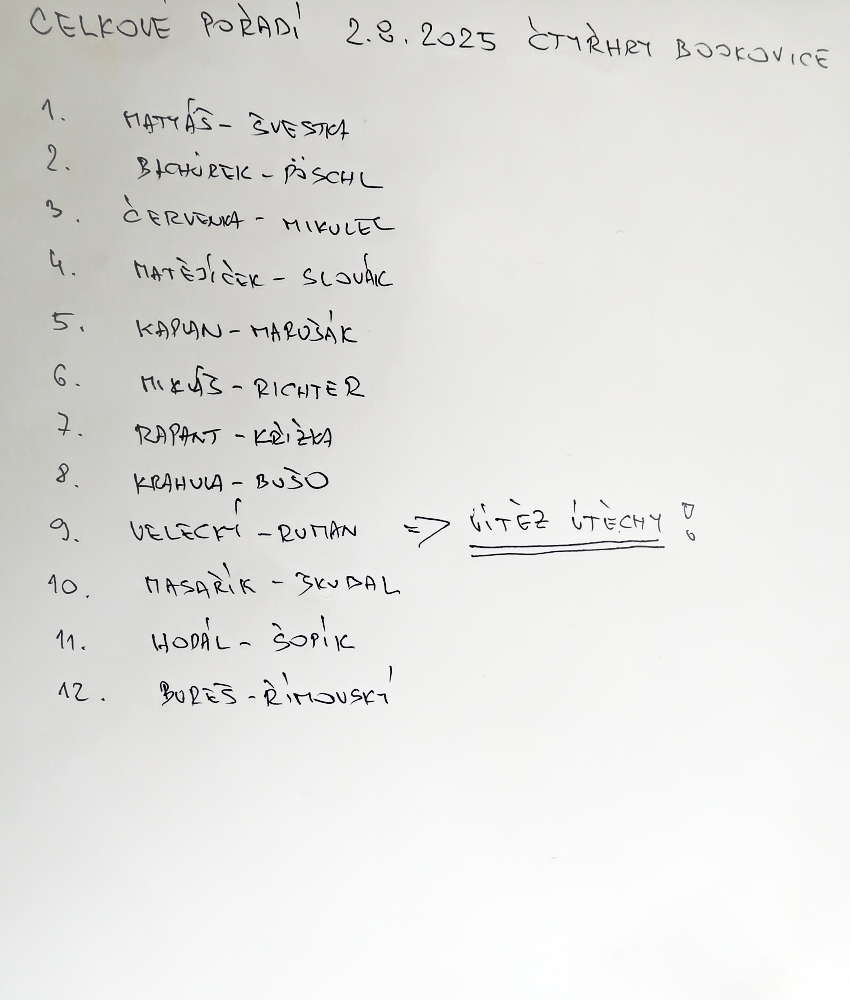 CELKOVÉ POŘADÍ 2.8.2025 ČTYŘHRY BOSKOVICE
1. MATYÁŠ - ŠVESTKA
2. BACHŮREK - PÖSCHL
3. ČERVENKA - MIKULEC
4. MATĚJÍČEK - SLOVÁK
5. KAPLAN - MAROŠÁK
6. MIKLÁŠ - RICHTER
7. RAPANT - KŘIŽKA
8. KRAHULA - BUŠO
9. VELECKÝ - RUMAN => VÍTĚZ ÚTĚCHY !
10. MASAŘÍK - SKUDAL
11. HODÁL - ŠOPÍK
12. BUREŠ - ŘÍMOVSKÝ